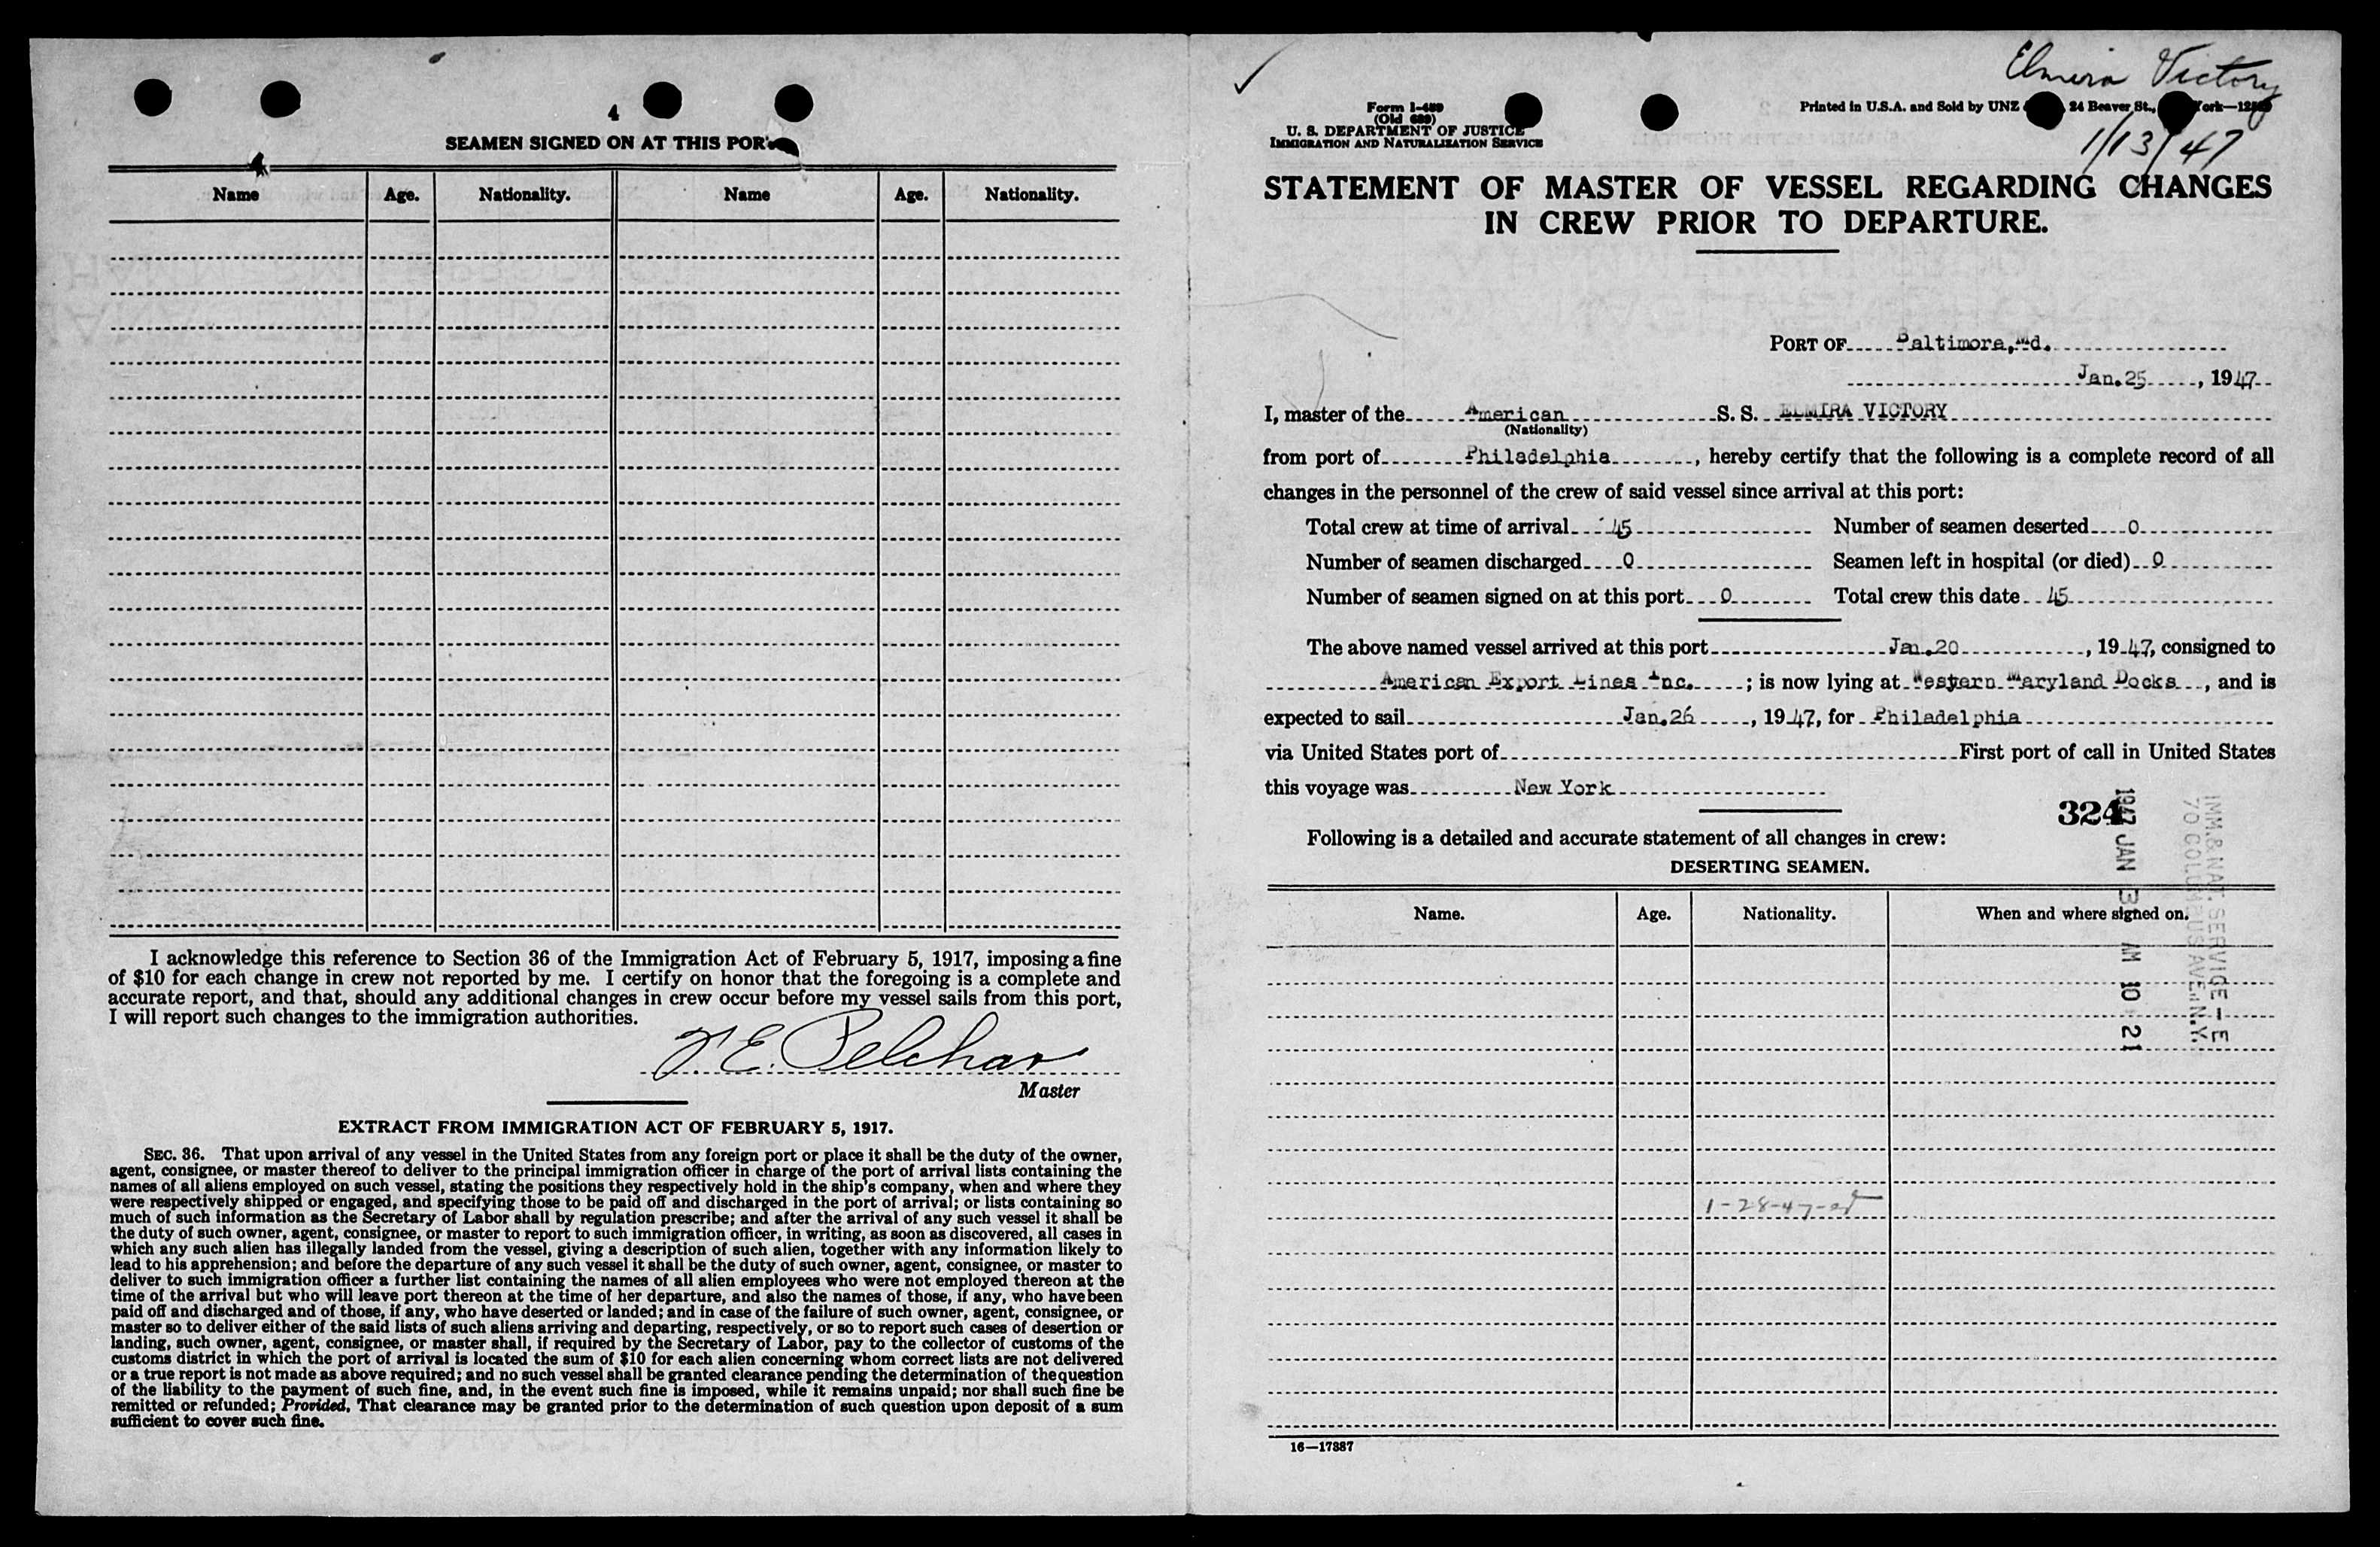 4
SEAMEN SIGNED ON AT THIS POR
Name Age. Nationality. Name Age. Nationality.
I acknowledge this reference to Section 36 of the Immigration Act of February 5, 1917, imposing a fine
of $10 for each change in crew not reported by me. I certify on honor that the foregoing is a complete and
accurate report, and that, should any additional changes in crew occur before my vessel sails from this port,
I will report such changes to the immigration authorities.
Master
EXTRACT FROM IMMIGRATION ACT OF FEBRUARY 5, 1917.
SEC. 36. That upon arrival of any vessel in the United States from any foreign port or place it shall be the duty of the owner,
agent, consignee, or master thereof to deliver to the principal immigration officer in charge of the port of arrival lists containing the
names of all aliens employed on such vessel, stating the positions they respectively hold in the ship's company, when and where they
were respectively shipped or engaged, and specifying those to be paid off and discharged in the port of arrival; or lists containing so
much of such information as the Secretary of Labor shall by regulation prescribe; and after the arrival of any such vessel it shall be
the duty of such owner, agent, consignee, or master to report to such immigration officer, in writing, as soon as discovered, all cases in
which any such alien has illegally landed from the vessel, giving a description of such alien, together with any information likely to
lead to his apprehension; and before the departure of any such vessel it shall be the duty of such owner, agent, consignee, or master to
deliver to such immigration officer a further list containing the names of all alien employees who were not employed thereon at the
time of the arrival but who will leave port thereon at the time of her departure, and also the names of those, if any, who have been
paid off and discharged and of those, if any, who have deserted or landed; and in case of the failure of such owner, agent, consignee, or
master so to deliver either of the said lists of such aliens arriving and departing, respectively, or so to report such cases of desertion or
landing, such owner, agent, consignee, or master shall, if required by the Secretary of Labor, pay to the collector of customs of the
customs district in which the port of arrival is located the sum of $10 for each alien concerning whom correct lists are not delivered
or a true report is not made as above required; and no such vessel shall be granted clearance pending the determination of the question
of the liability to the payment of such fine, and, in the event such fine is imposed, while it remains unpaid; nor shall such fine be
remitted or refunded; Provided, That clearance may be granted prior to the determination of such question upon deposit of a sum
sufficient to cover such fine.
Elmira Victory
1/13/47
Form I-489
(Old 689)
U. S. DEPARTMENT OF JUSTICE
IMMIGRATION AND NATURALIZATION SERVICE
Printed in U.S.A. and Sold by UNZ 24 Beaver St., York
STATEMENT OF MASTER OF VESSEL REGARDING CHANGES
IN CREW PRIOR TO DEPARTURE.
PORT OF Baltimore, Md.
Jan. 25, 1947
I, master of the American S. S. ELMIRA VICTORY
(Nationality)
from port of Philadelphia, hereby certify that the following is a complete record of all
changes in the personnel of the crew of said vessel since arrival at this port:
Total crew at time of arrival 45 Number of seamen deserted 0
Number of seamen discharged 0 Seamen left in hospital (or died) 0
Number of seamen signed on at this port 0 Total crew this date 45
The above named vessel arrived at this port Jan. 20, 1947, consigned to
American Export Lines Inc.; is now lying at Western Maryland Docks, and is
expected to sail Jan. 26, 1947, for Philadelphia
via United States port of First port of call in United States
this voyage was New York
324
Following is a detailed and accurate statement of all changes in crew:
DESERTING SEAMEN.
Name. Age. Nationality. When and where signed on.
1947 JAN 31 AM 10 21
IMM. & NAT. SERVICE - E
70 COLUMBUS AVE. N.Y.
1-28-47
16—17887